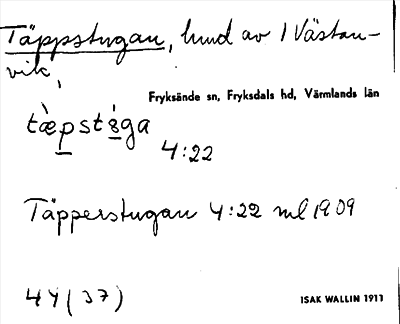 Täppstugan, hmd av 1 Västan-
vik,
Fryksände sn, Fryksdals hd, Värmlands län
4:22
Täpperstugan 4:22 ml 1909
44 (37)
ISAK WALLIN 1911